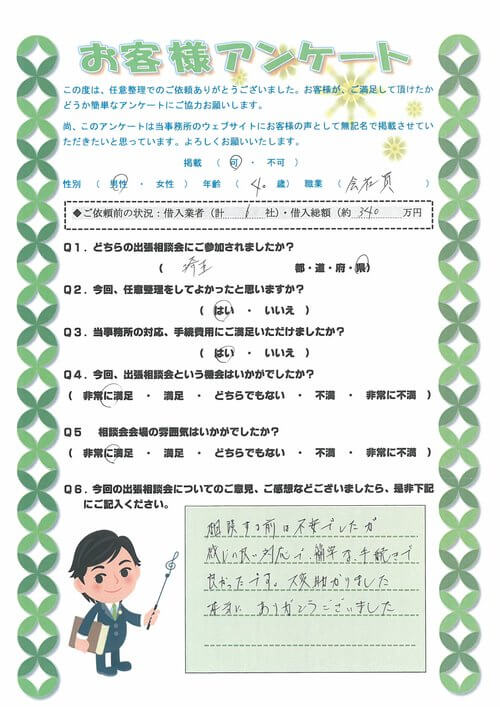 お客様アンケート
この度は、任意整理でのご依頼ありがとうございました。お客様が、ご満足して頂けたか
どうか簡単なアンケートにご協力お願いします。
尚、このアンケートは当事務所のウェブサイトにお客様の声として無記名で掲載させてい
ただきたいと思っています。よろしくお願いいたします。
掲載 ( 可 ・ 不可 )
性別 ( 男性 ・ 女性 ) 年齢 ( 40 歳) 職業 ( 会社員 )
◆ご依頼前の状況:借入業者(計 6 社)・借入総額(約 340 万円
Q1.どちらの出張相談会にご参加されましたか?
( 埼玉 都・道・府・県)
Q2.今回、任意整理をしてよかったと思いますか?
( はい ・ いいえ )
Q3.当事務所の対応、手続費用にご満足いただけましたか?
( はい ・ いいえ )
Q4.今回、出張相談会という機会はいかがでしたか?
( 非常に満足 ・ 満足 ・ どちらでもない ・ 不満 ・ 非常に不満 )
Q5 相談会会場の雰囲気はいかがでしたか?
( 非常に満足 ・ 満足 ・ どちらでもない ・ 不満 ・ 非常に不満 )
Q6.今回の出張相談会についてのご意見、ご感想などございましたら、是非下記
にご記入ください。
相談する前は不安でしたが
感じ良い対応で、簡単な手続きで
良かったです。大変助かりました
本当に ありがとうございました